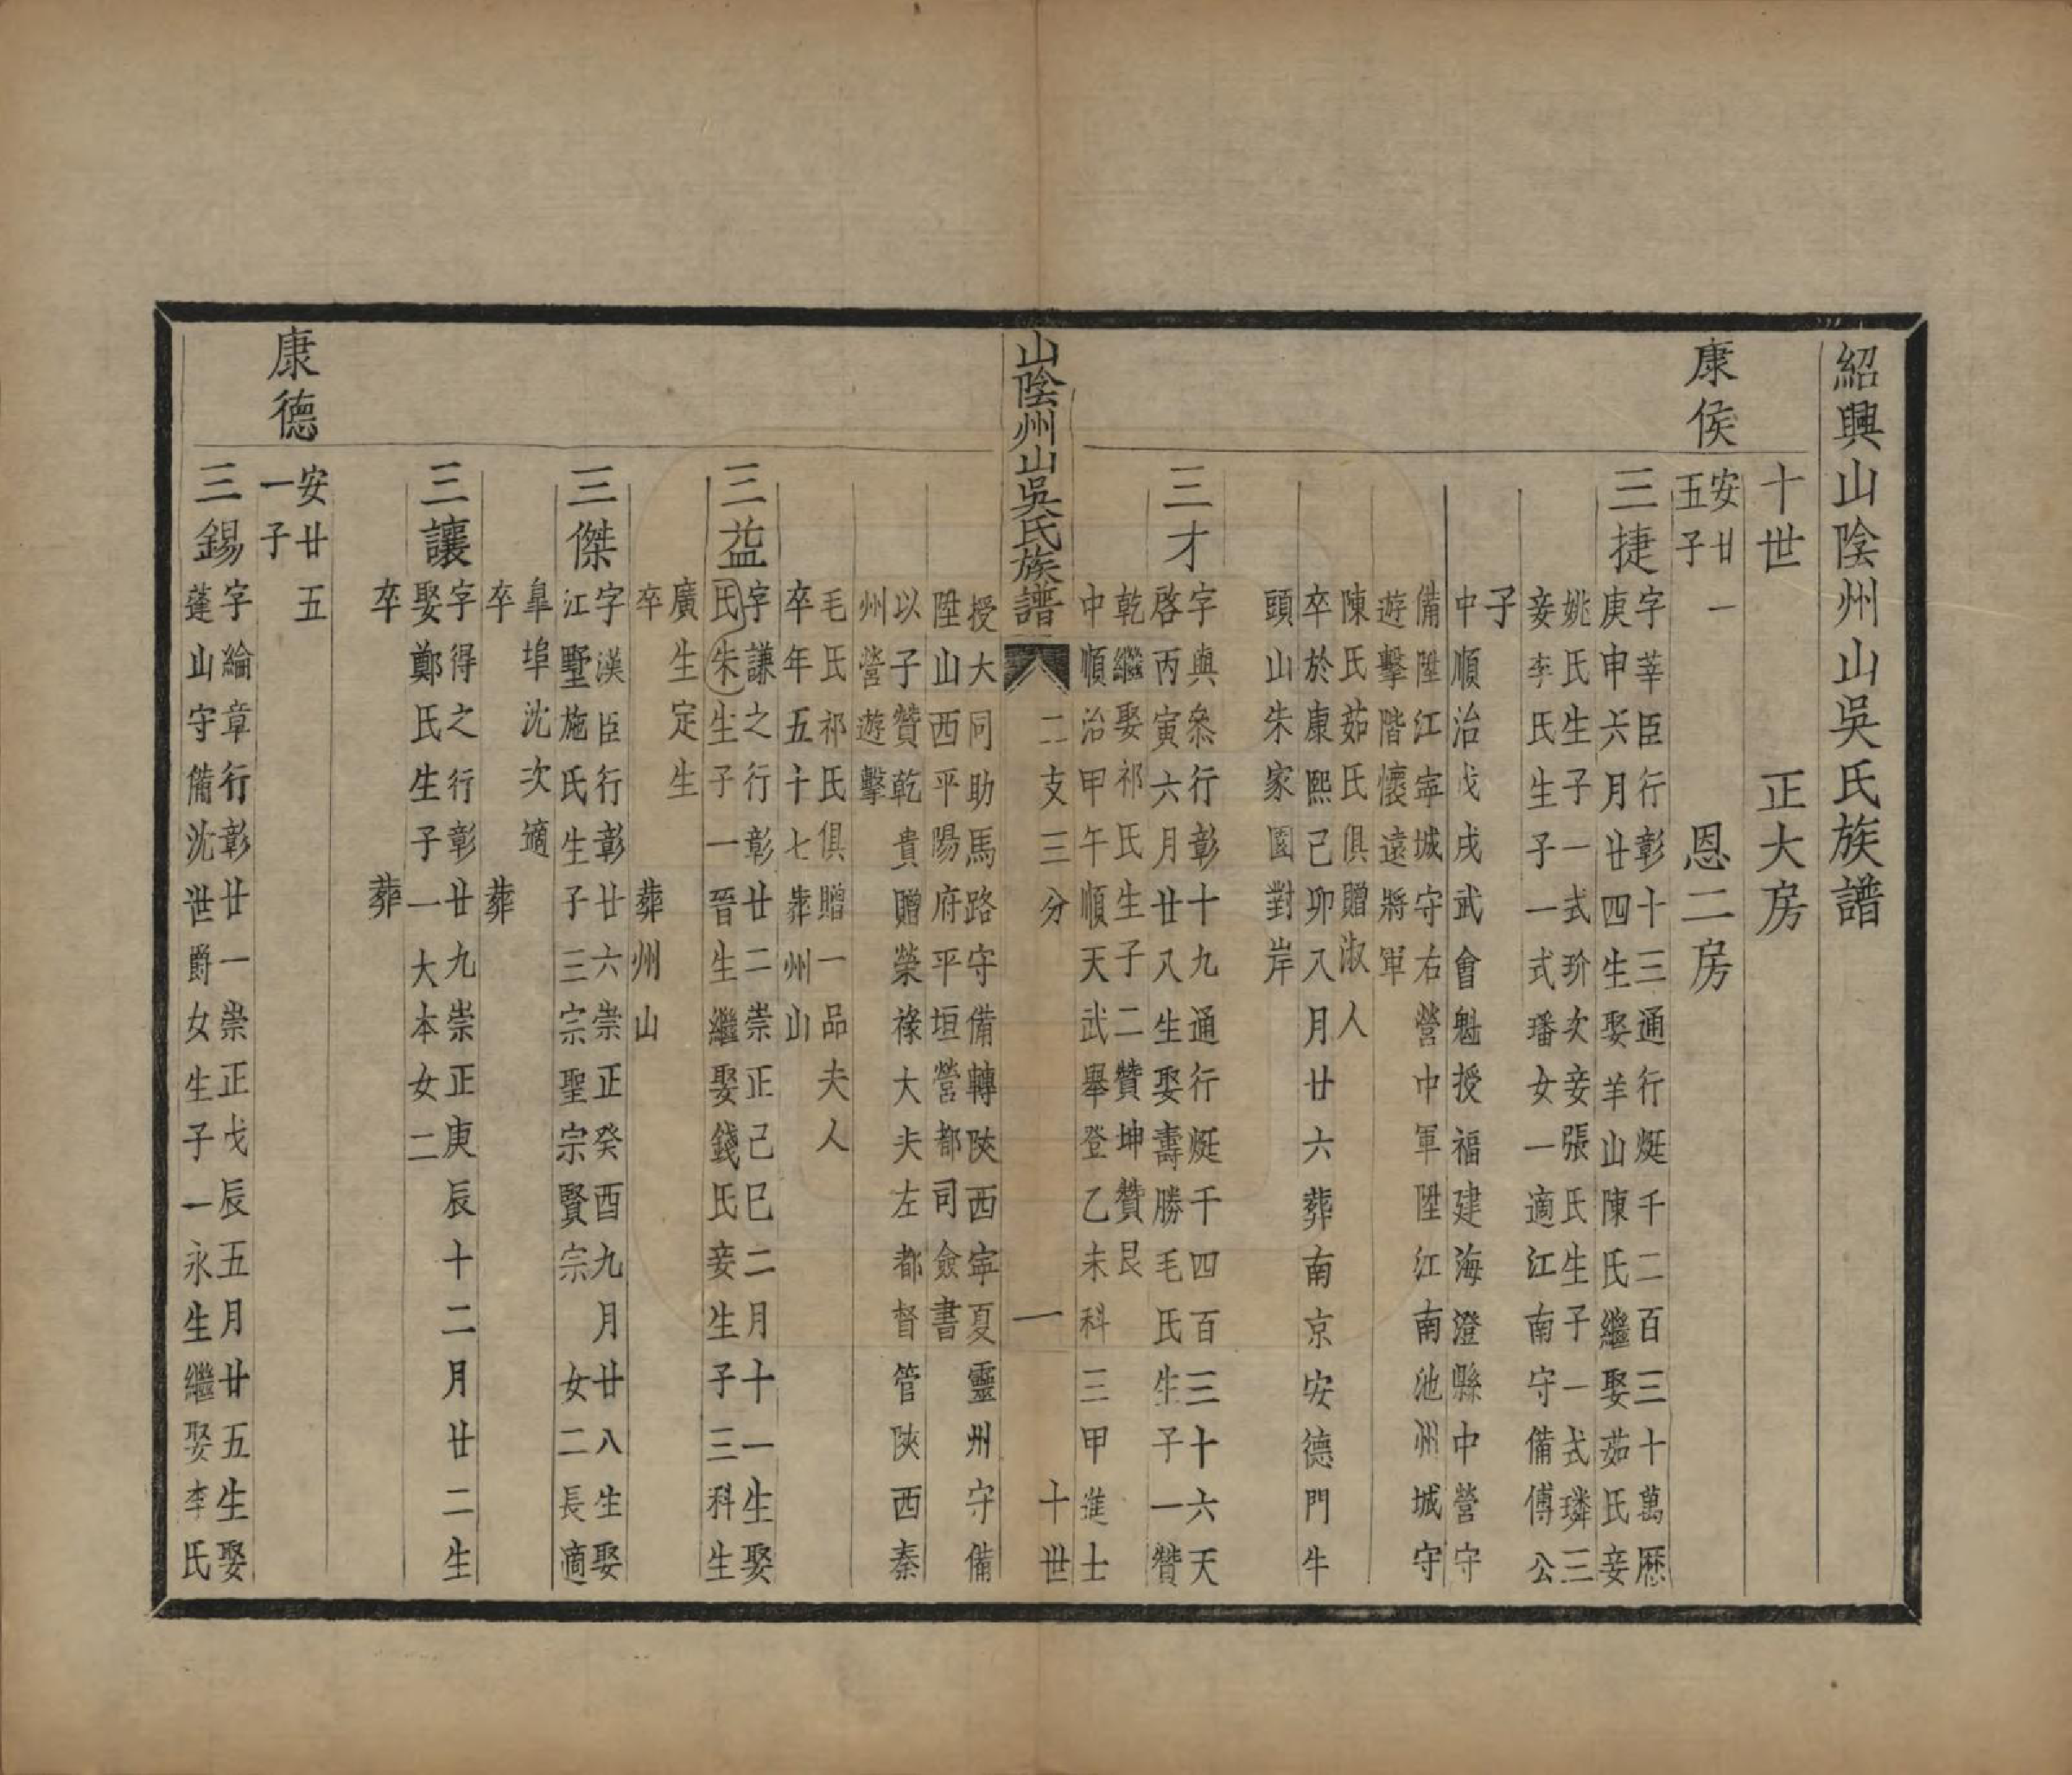 紹興山陰州山吳氏族譜
十世　正大房
康侯　安廿一　恩二房
五子
三捷　字莘臣行彰十三通行烶千二百三十萬歷
庚申六月廿四生娶羊山陳氏繼娶茹氏妾
姚氏生子一式玠次妾張氏生子一式璘三
妾李氏生子一式璠女一適江南守備傅公
子
中順治戊戌武會魁授福建海澄縣中營守
備陞江寧城守右營中軍陞江南池州城守
遊擊階懷遠將軍
陳氏茹氏俱贈淑人
卒於康熙己卯八月廿六葬南京安德門牛
頭山朱家園對岸
三才　字與叅行彰十九通行烶千四百三十六天
啓丙寅六月廿八生娶壽勝毛氏生子一贊
乾繼娶祁氏生子二贊坤贊艮
中順治甲午順天武舉登乙未科三甲進士
山陰州山吳氏族譜　二支三分　一　十世
授大同助馬路守備轉陝西寧夏靈州守備
陞山西平陽府平垣營都司僉書
以子贊乾貴贈榮祿大夫左都督管陝西秦
州營遊擊
毛氏祁氏俱贈一品夫人
卒年五十七葬州山
三益　字謙之行彰廿二崇正己巳二月十一生娶
氏朱生子一晉生繼娶錢氏妾生子三科生
廣生定生
卒　葬州山
三傑　字漢臣行彰廿六崇正癸酉九月廿八生娶
江墅施氏生子三宗聖宗賢宗　女二長適
皐埠沈次適
卒　葬
三讓　字得之行彰廿九崇正庚辰十二月廿二生
娶鄭氏生子一大本女二
卒　葬
康德　安廿五
一子
三錫　字綸章行彰廿一崇正戊辰五月廿五生娶
蓬山守備沈世爵女生子一永生繼娶李氏